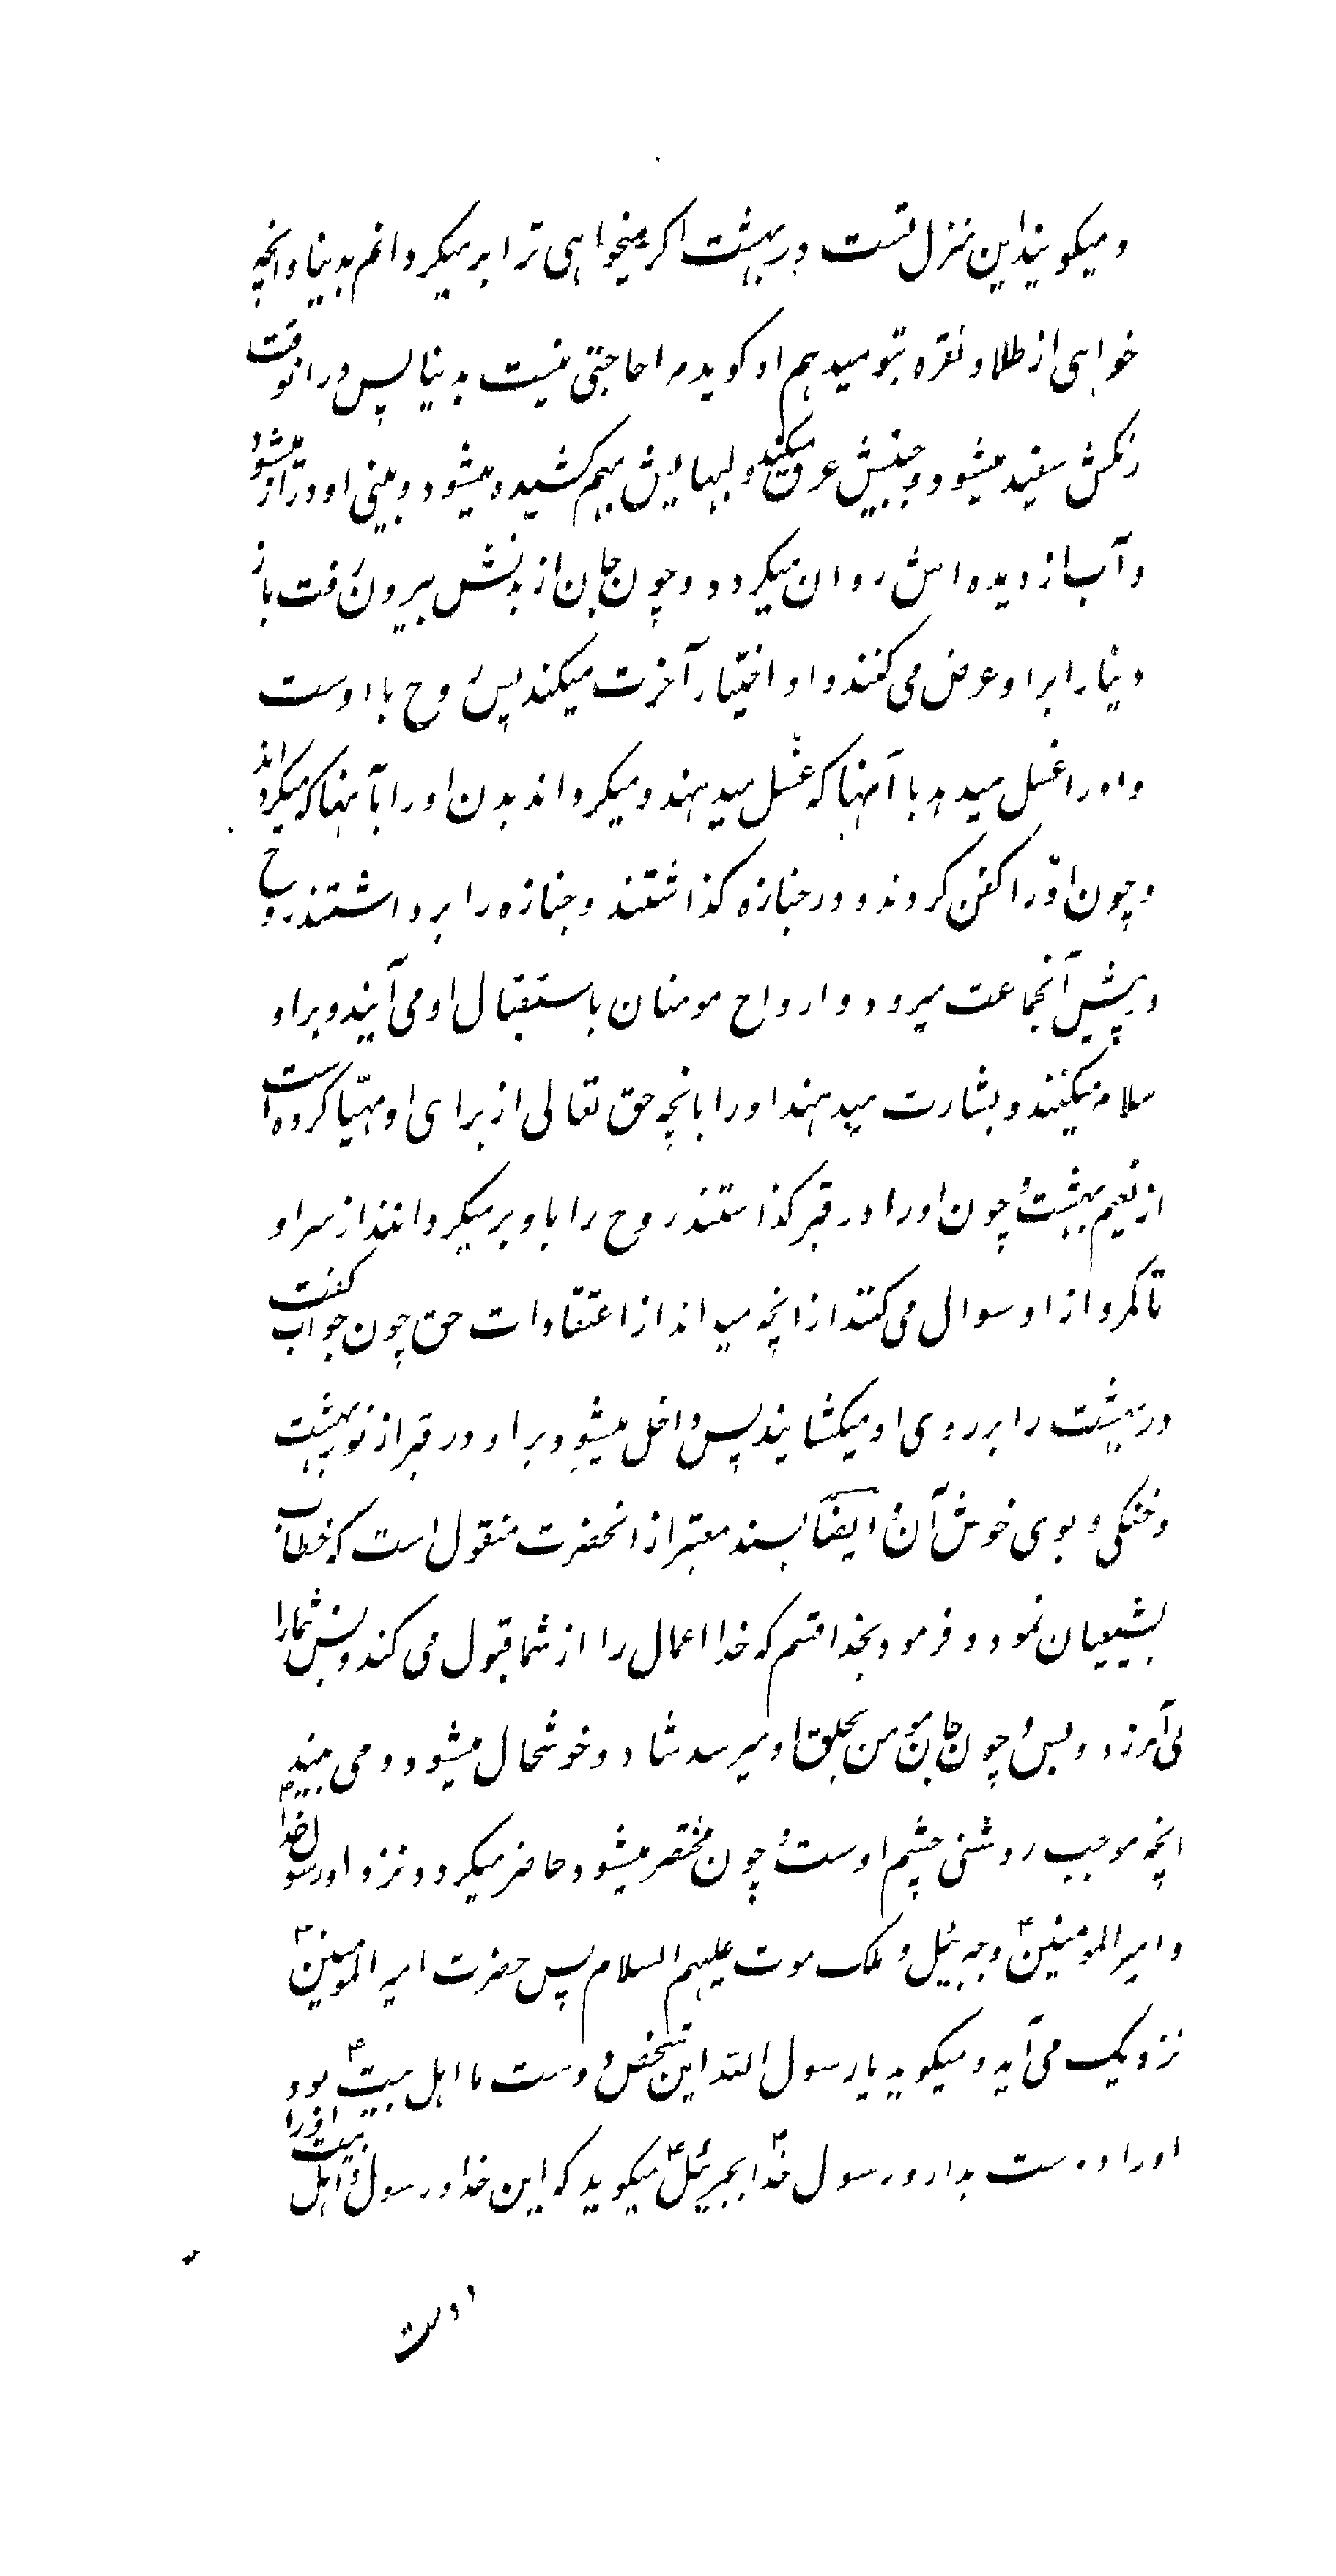 و میکویند این منزل تست در بهشت اکر میخواهی ترا برمیکردانم بدنیا و انچه
خواهی از طلا و نقره بتو میدهم او کوید مرا حاجتی نیست بدنیا پس در انوقت
رنکش سفید میشود و جبینش عرق میکند و لبهایش بهم کشیده میشود و بینی او دراز میشود
و آب از دیده اش روان میکردد و چون جان از بدنش بیرون رفت باز
دنیا را بر او عرض می کنند و او اختیار آخرت میکند پس روح با اوست
و او را غسل میدهد با آنها که غسل میدهند و میکرداند بدن او را با آنها که میکردانند
و چون او را کفن کردند و در جنازه کذاشتند و جنازه را برداشتند روح
در پیش آنجماعت میرود و ارواح مومنان باستقبال او می آیند و بر او
سلام میکنند و بشارت میدهند او را بانچه حق تعالی از برای او مهیّا کرده است
از نعیم بهشت و چون او را در قبر کذاشتند روح را باو برمیکردانند از سر او
تا کمر و از او سوال می کنند از انچه میداند از اعتقادات حق چون جواب کفت
در بهشت را بر روی او میکشایند پس داخل میشود بر او در قبر از نور بهشت
و خنکی و بوی خوش آن و ایضاً بسند معتبر از انحضرت منقول است که خطاب
بشیعیان نمود و فرمود بخدا قسم که خدا اعمال را از شما قبول می کند و بس شما را
می آمرزد و بس و چون جان مؤمن بحلق او میرسد شاد و خوشحال میشود و می بیند
انچه موجب روشنی چشم اوست و چون محتضر میشود حاضر میکردد نزد او رسول خدا ۳
و امیر المومنین ۴ و جبرئیل و ملک موت علیهم السلام پس حضرت امیر المومنین ۴
نزدیک می آید و میکوید یا رسول الله این شخص دوست ما اهل بیت ۴ بود
او را دوست بدار و رسول خدا ۳ بجبرئیل ۴ میکوید که این خدا و رسول و اهل بیت او را